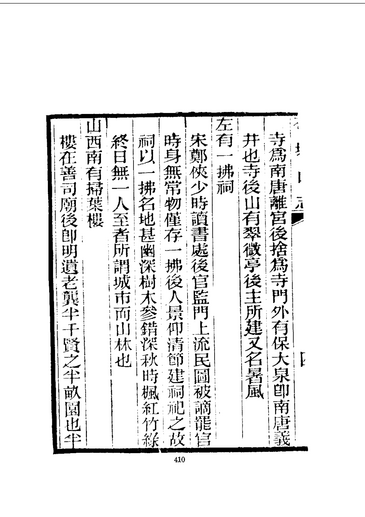 寺爲南唐離宮後捨爲寺門外有保大泉卽南唐義
井也寺後山有翠微亭後主所建又名暑風
左有一拂祠
宋鄭俠少時讀書處後官監門上流民圖被謫罷官
時身無常物僅存一拂後人景仰清節建祠祀之故
祠以一拂名地甚幽深樹木參錯深秋時楓紅竹綠
終日無一人至者所謂城市而山林也
山西南有掃葉樓
樓在善司廟後卽明遺老龔半千賢之半畝園也半
410